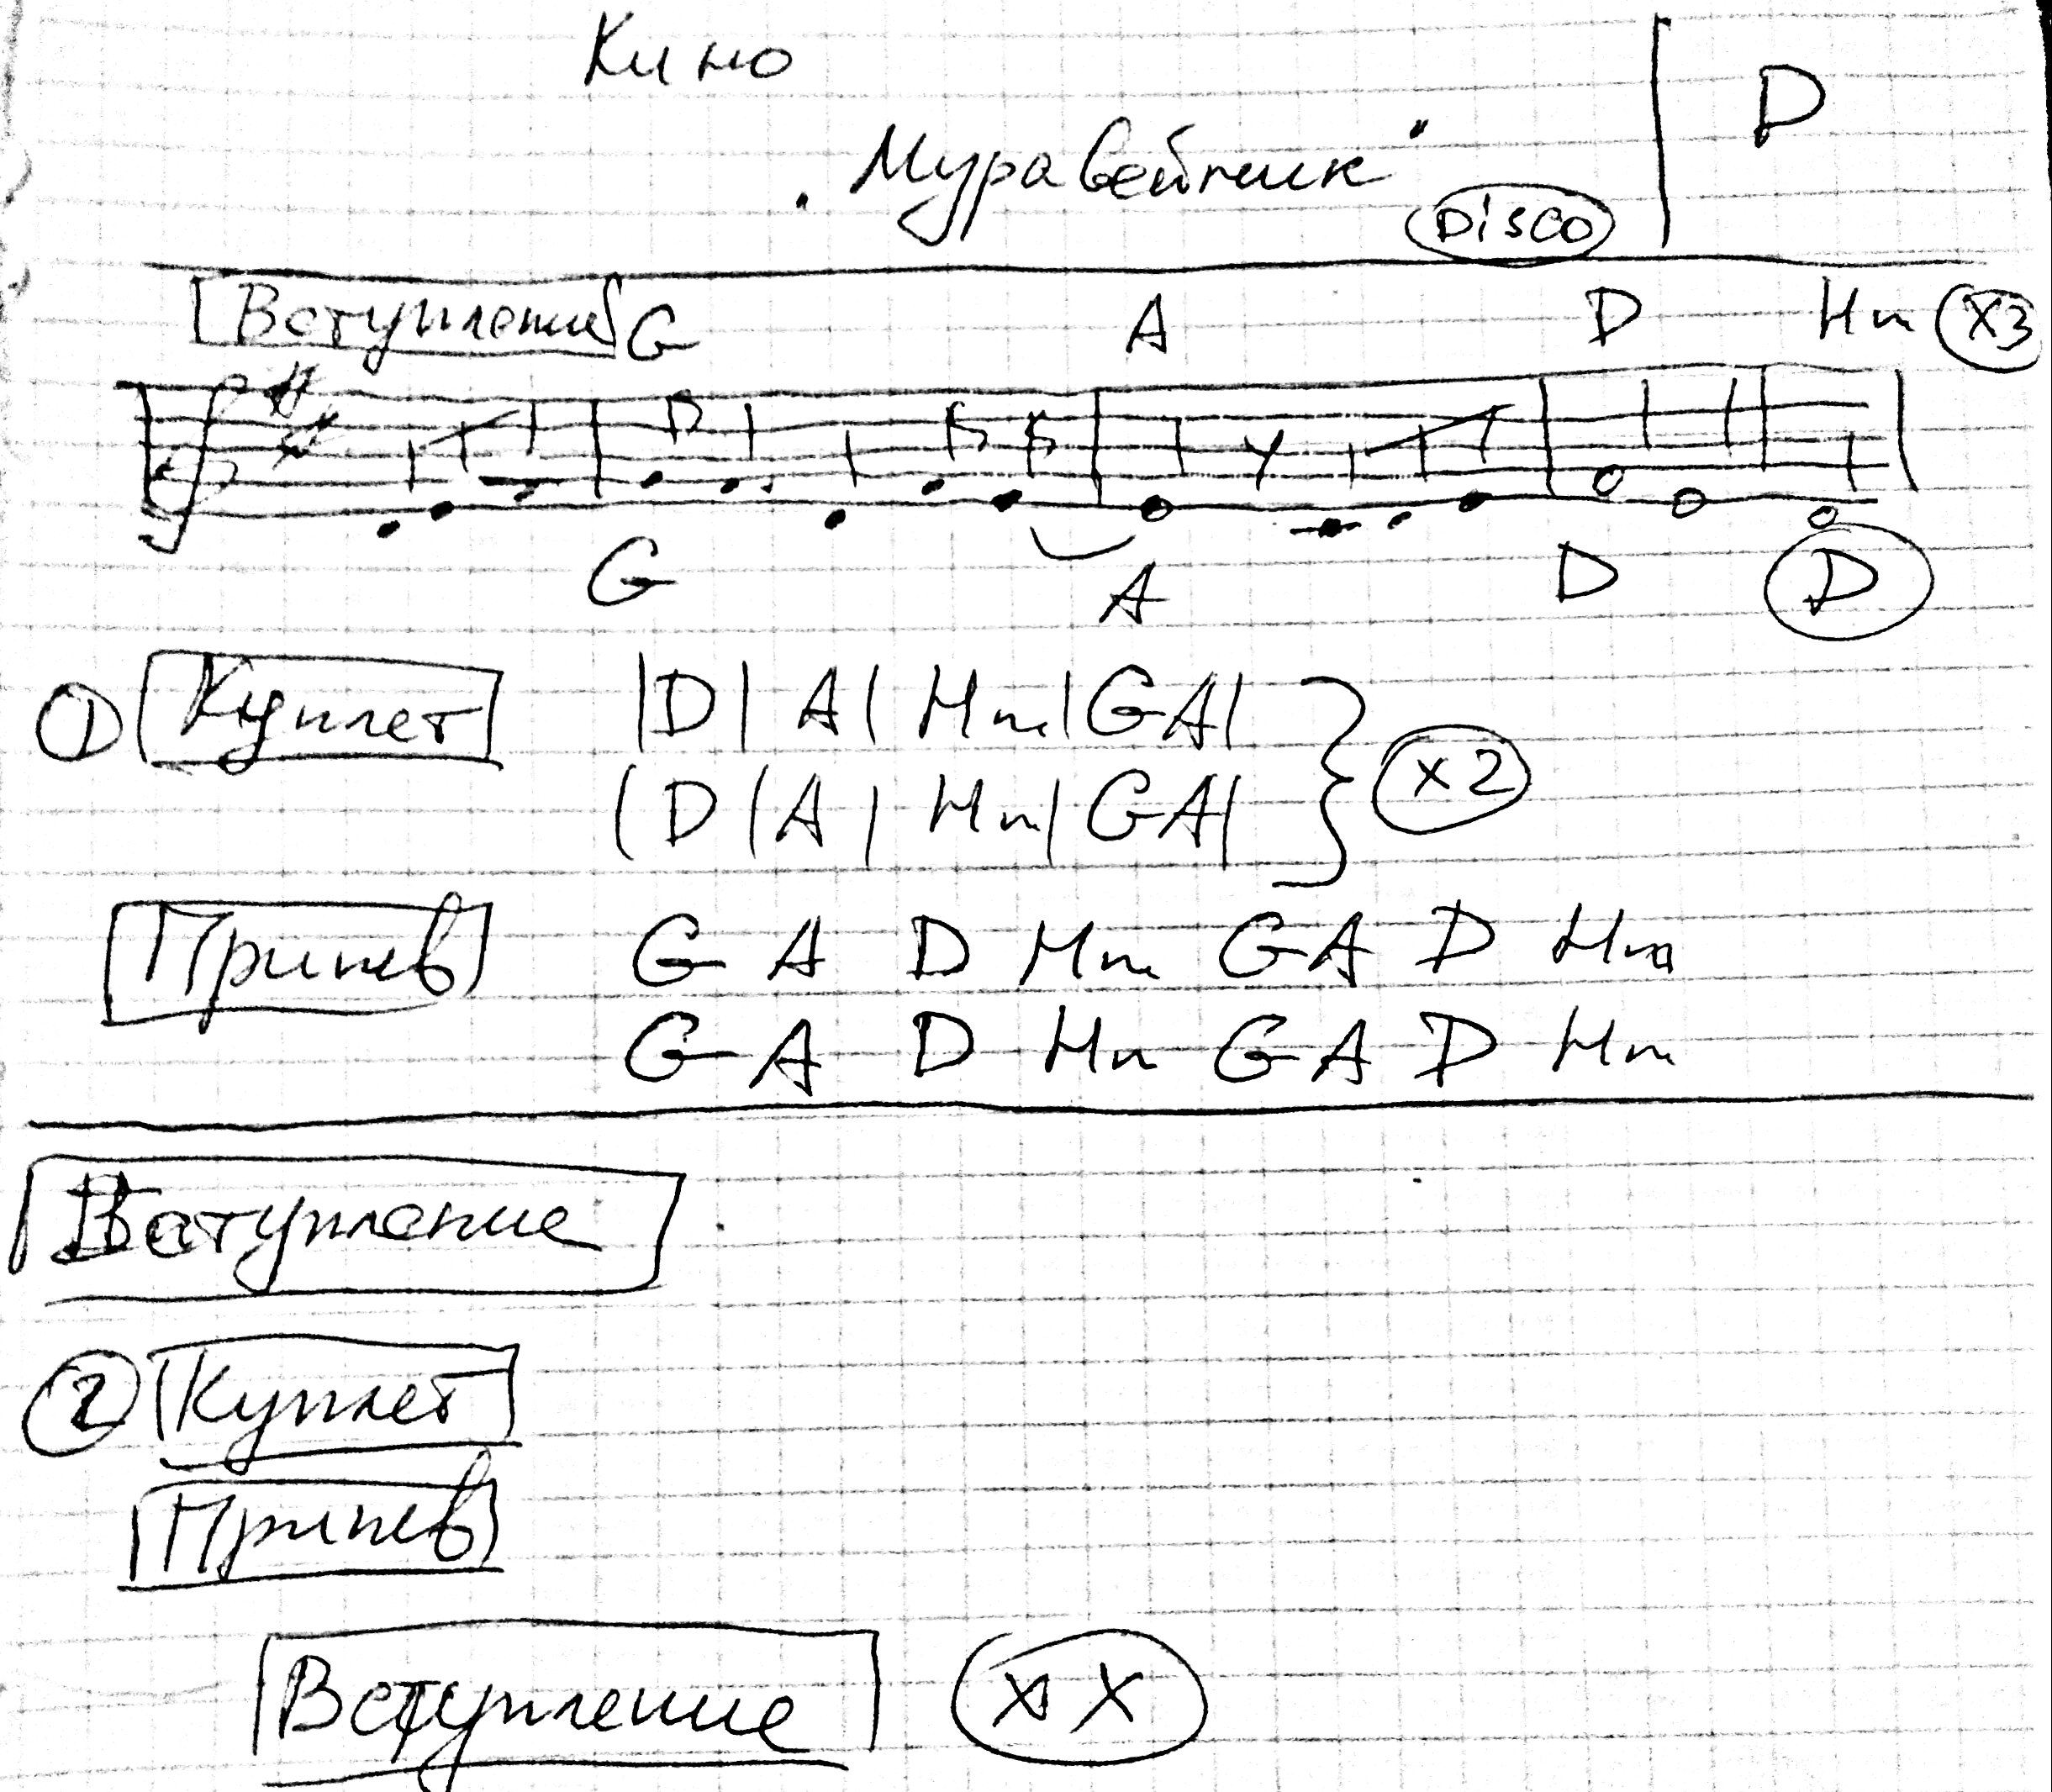 Кино
D
"Муравейник"
Disco
Вступление G A D Hm X3
G A D D
1 Куплет |D| A| Hm|GA|
|D|A| Hm|GA| x2
Припев G A D Hm GA D Hm
G A D Hm GA D Hm
Вступление
2 Куплет
Припев
Вступление x X